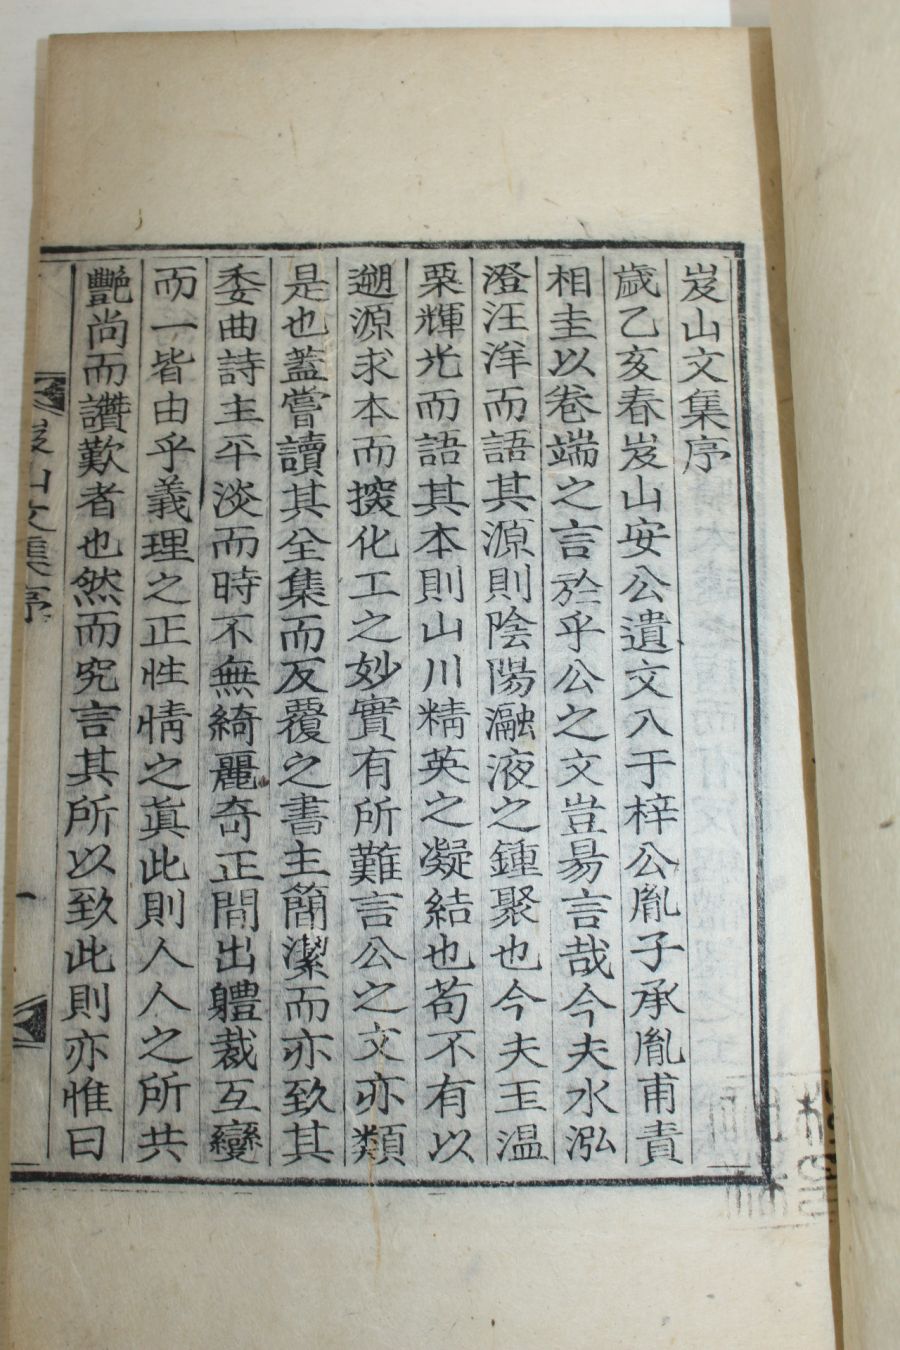 岌山文集序
歲乙亥春岌山安公遺文入于梓公胤子承胤甫責
相圭以卷端之言於乎公之文豈易言哉今夫水泓
澄汪洋而語其源則陰陽瀜液之鍾聚也今夫玉温
栗輝光而語其本則山川精英之凝結也苟不有以
遡源求本而揬化工之妙實有所難言公之文亦類
是也蓋嘗讀其全集而反覆之書主簡潔而亦致其
委曲詩主平淡而時不無綺麗奇正間出軆裁互變
而一皆由乎義理之正性情之眞此則人人之所共
艷尚而讚歎者也然而究言其所以致此則亦惟曰
岌山文集序